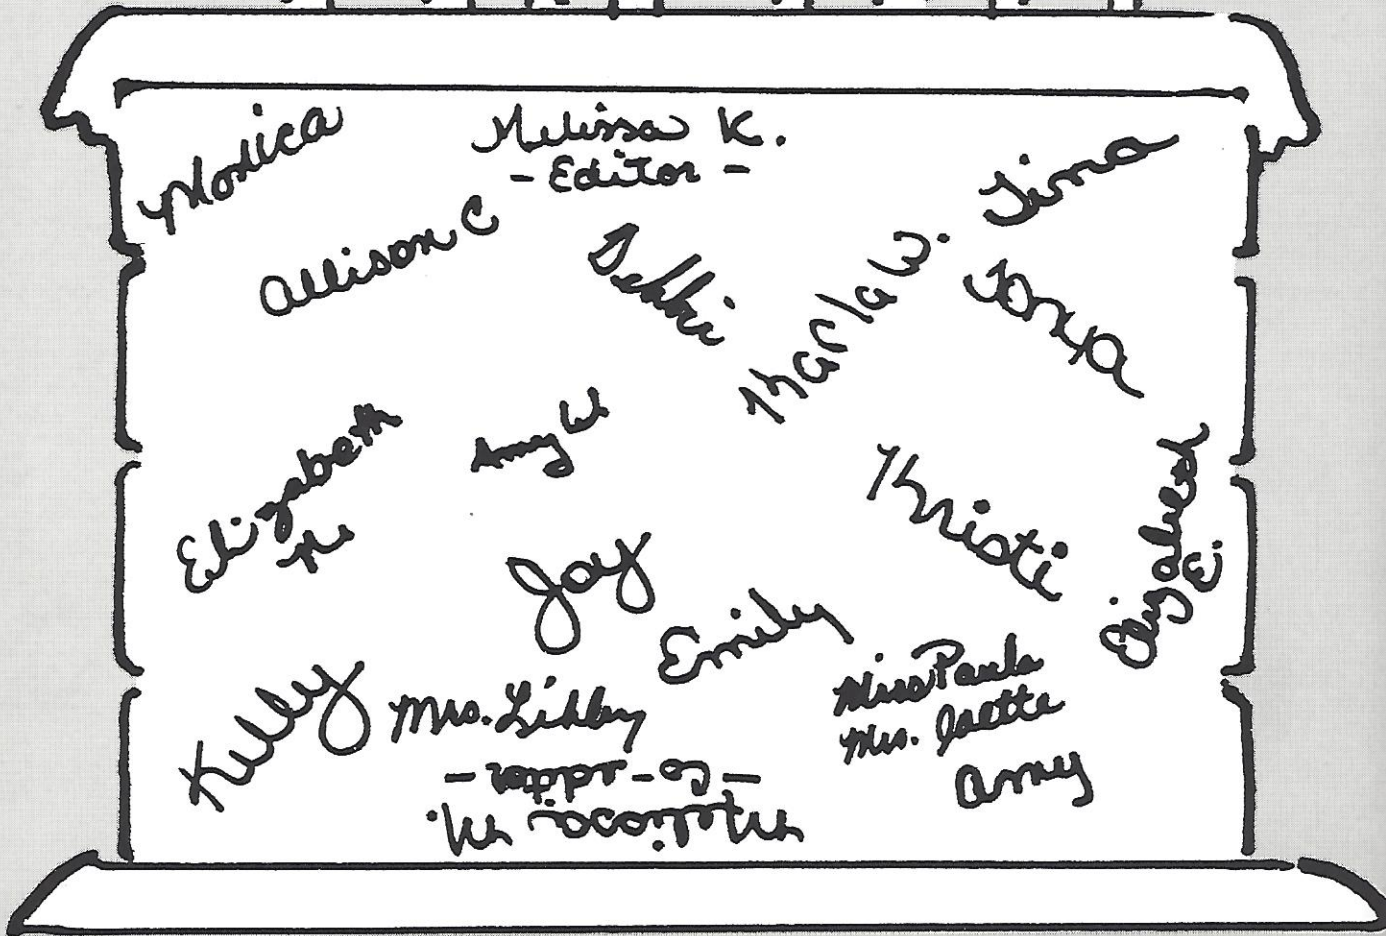 Monica
Melissa K.
- Editor -
Tina
Allison C
Debbi
Karla W.
Tonya
Elizabeth
Amy W
Kristi
Elizabeth
E.
Joy
Emily
Kelly
Mrs. Libby
Miss Paula
Mrs. Joette
Amy
Melissa M.
- Co-editor -